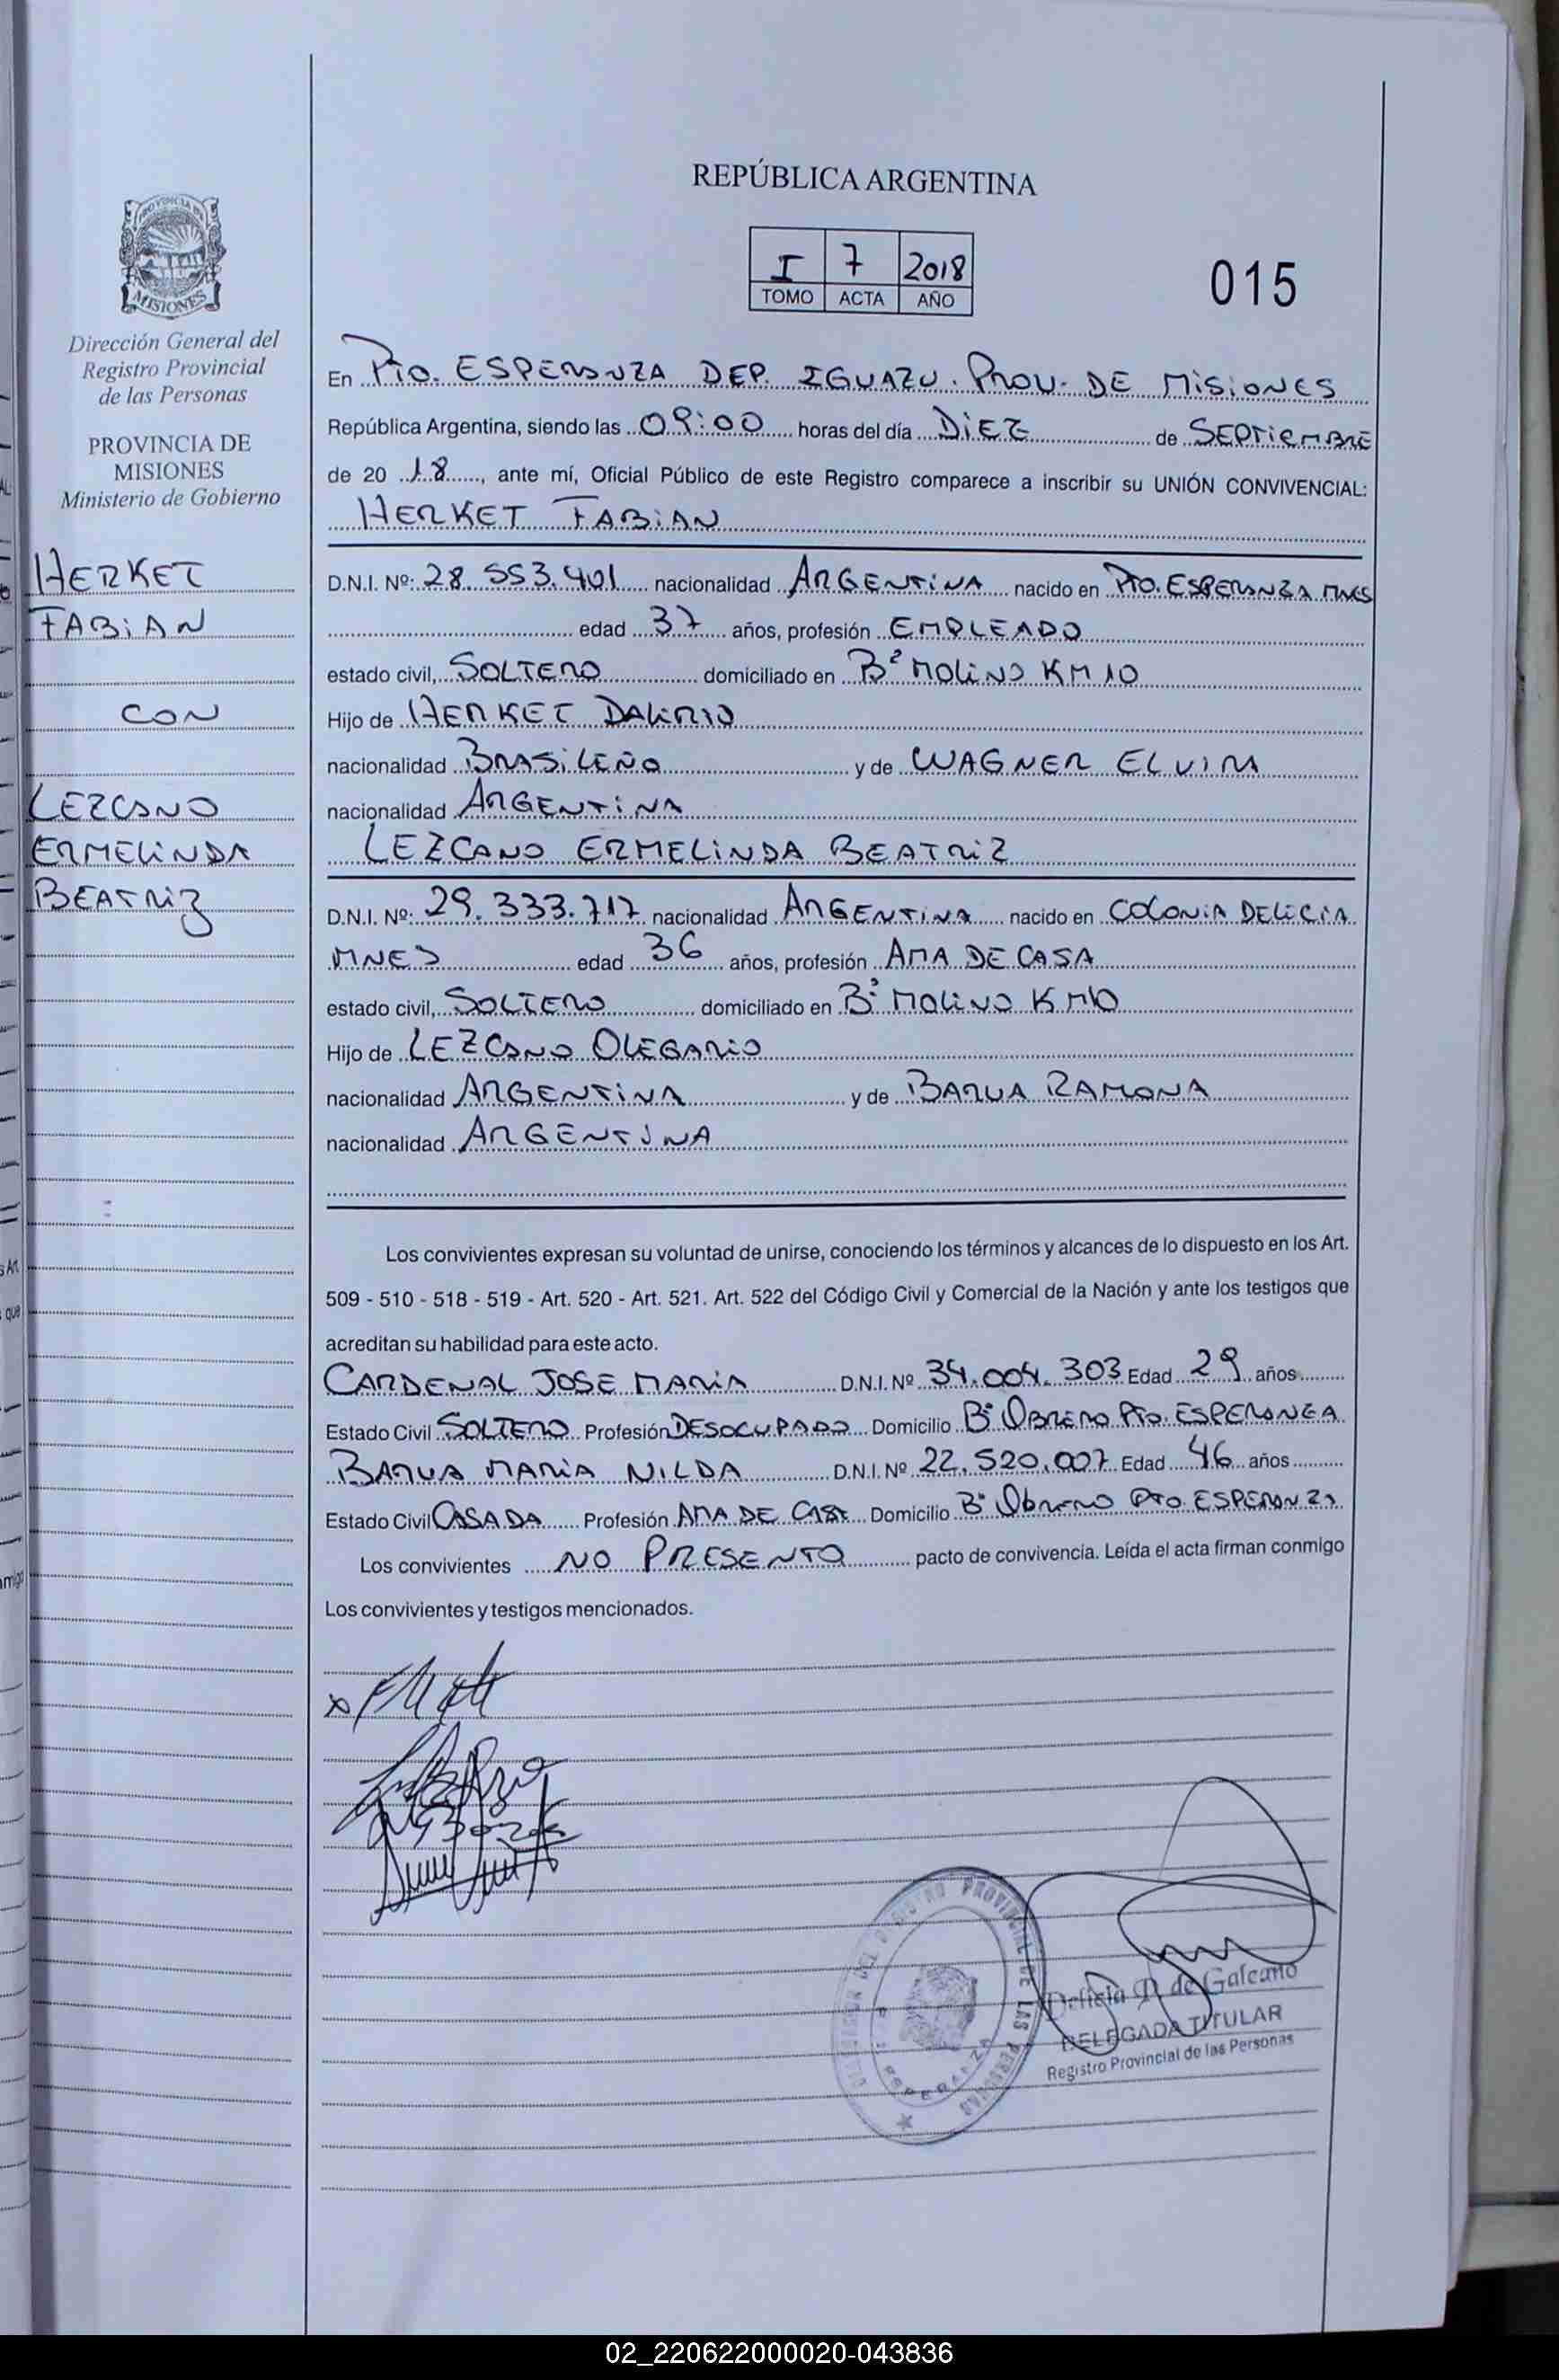 REPÚBLICA ARGENTINA
I 7 2018
TOMO ACTA AÑO
015
PROVINCIA DE
MISIONES
Dirección General del
Registro Provincial
de las Personas
PROVINCIA DE
MISIONES
Ministerio de Gobierno
HERKET
FABIAN
CON
LEZCANO
ERMELINDA
BEATRIZ
En Pto. ESPERANZA DEP. IGUAZU. PROV. DE MISIONES
República Argentina, siendo las 09:00 horas del día DIEZ de SEPTIEMBRE
de 20 18, ante mí, Oficial Público de este Registro comparece a inscribir su UNIÓN CONVIVENCIAL:
HERKET FABIAN
D.N.I. Nº: 28.553.401 nacionalidad ARGENTINA nacido en PTO. ESPERANZA MNES
edad 37 años, profesión EMPLEADO
estado civil, SOLTERO domiciliado en Bº MOLINO KM 10
Hijo de HERKET
nacionalidad BRASILEÑO y de WAGNER ELVIRA
nacionalidad ARGENTINA
LEZCANO ERMELINDA BEATRIZ
D.N.I. Nº: 29.333.717 nacionalidad ARGENTINA nacido en COLONIA DELICIA
MNES edad 36 años, profesión AMA DE CASA
estado civil, SOLTERO domiciliado en Bº MOLINO KM10
Hijo de LEZCANO OLEGARIO
nacionalidad ARGENTINA y de BARUA RAMONA
nacionalidad ARGENTINA
Los convivientes expresan su voluntad de unirse, conociendo los términos y alcances de lo dispuesto en los Art.
509 - 510 - 518 - 519 - Art. 520 - Art. 521. Art. 522 del Código Civil y Comercial de la Nación y ante los testigos que
acreditan su habilidad para este acto.
CARDENAL JOSE MARIA D.N.I. Nº 34.004.303 Edad 29 años
Estado Civil SOLTERO Profesión DESOCUPADO Domicilio Bº OBRERO PTO. ESPERANZA
BARUA MARIA NILDA D.N.I. Nº 22.520.007 Edad 46 años
Estado Civil CASADA Profesión AMA DE CASA Domicilio Bº OBRERO PTO. ESPERANZA
Los convivientes NO PRESENTO pacto de convivencia. Leída el acta firman conmigo
Los convivientes y testigos mencionados.
REGISTRO PROVINCIAL DE LAS PERSONAS
ESPERANZA
de Galeano
DELEGADA TITULAR
Registro Provincial de las Personas
02_220622000020-043836